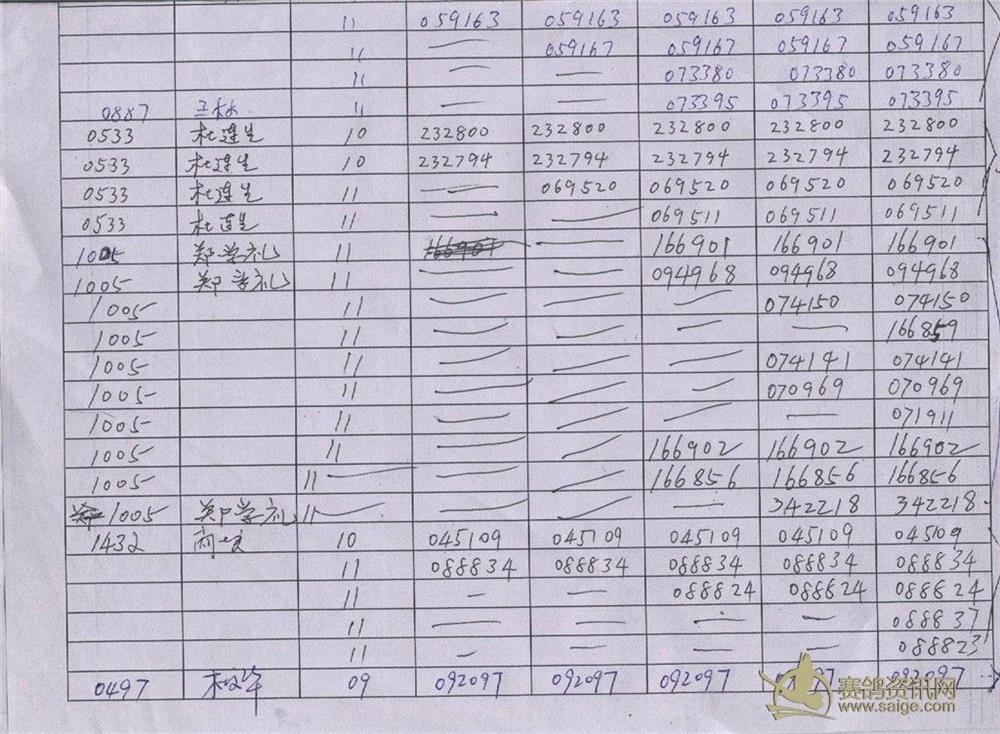 11 059163 059163 059163 059163 059163
11 — 059167 059167 059167 059167
11 — — 073380 073380 073380
0887 王林 11 — — 073395 073395 073395
0533 杜连生 10 232800 232800 232800 232800 232800
0533 杜连生 10 232794 232794 232794 232794 232794
0533 杜连生 11 — 069520 069520 069520 069520
0533 杜连生 11 — — 069511 069511 069511
1005 郑学礼 11 — 166901 166901 166901
1005 郑学礼 11 — — 094968 094968 094968
1005 11 — — — 074150 074150
1005 11 — — — — 166859
1005 11 — — — 074141 074141
1005 11 — — — 070969 070969
1005 11 — — — — 071911
1005 11 — — 166902 166902 166902
1005 11 — — 166856 166856 166856
1005 郑学礼 11 — — — 342218 342218
1432 10 045109 045109 045109 045109 045109
11 088834 088834 088834 088834 088834
11 — — 088824 088824 088824
11 — — — — 088837
11 — — — — 088823
0497 09 092097 092097 092097 092097
赛鸽资讯网
www.saige.com